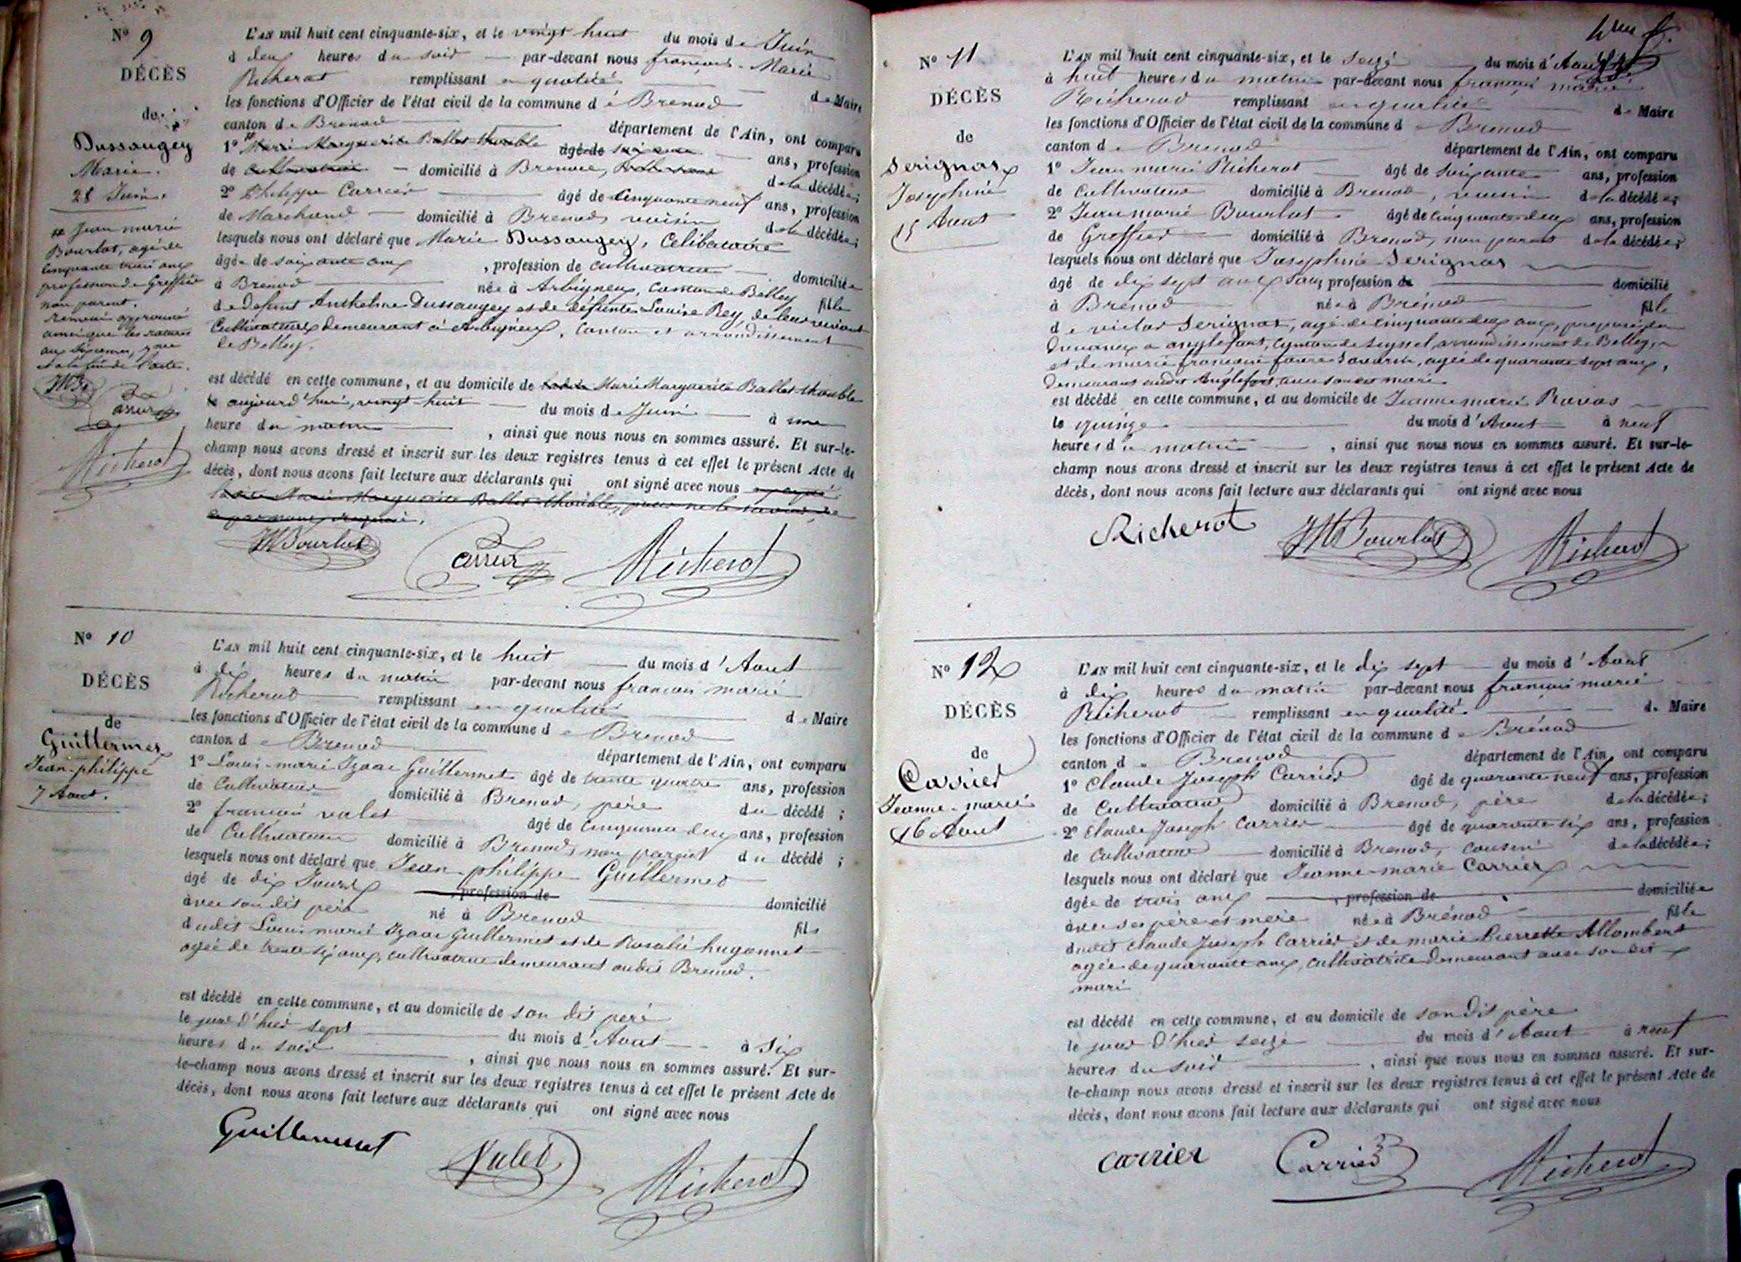 N° 9
DÉCÈS
de
Dussaugey
Marie.
28 Juin.
# Jean marie
Bourlot, agé de
cinquante trois ans
profession de Greffier
non parent.
Renvoi approuvé
ainsi que les ratures
aux lignes
et à la fin de l'acte.
L'AN mil huit cent cinquante-six, et le vingt huit du mois de Juin
à deux heures du soir par-devant nous françois-Marie
Richerot remplissant en qualité de Maire
les fonctions d'Officier de l'état civil de la commune de Brenod
canton de Brenod département de l'Ain, ont comparu
1° # Marie Marguerite Ballet thouble âgé de ans, profession
de cultivatrice domicilié à Brenod, de la décédée;
2° Philippe Carrier âgé de cinquante neuf ans, profession
de Marchand domicilié à Brenod, voisin de la décédée;
lesquels nous ont déclaré que Marie Dussaugey, Célibataire
âgée de soixante ans, profession de cultivatrice domiciliée
à Brenod née à Arbigneux, Canton de Belley fille
de défunt Anthelme Dussaugey et de défunte Louise Rey, de leur vivant
Cultivateurs demeurant à Arbigneux, Canton et arrondissement
de Belley.
est décédé en cette commune, et au domicile de Marie Marguerite Ballet thouble
le aujourd'hui, vingt huit du mois de Juin à une
heure du matin, ainsi que nous nous en sommes assuré. Et sur-le-
champ nous avons dressé et inscrit sur les deux registres tenus à cet effet le présent Acte de
décès, dont nous avons fait lecture aux déclarants qui ont signé avec nous
Marie Marguerite Ballet thouble, pour ne le savoir, de
JMBourlot
Carrier
Richerot
N° 10
DÉCÈS
de
Guillermet
Jean-philippe
7 Aout.
L'AN mil huit cent cinquante-six, et le huit du mois d'Aout
à dix heures du matin par-devant nous francois marie
Richerot remplissant en qualité de Maire
les fonctions d'Officier de l'état civil de la commune de Brenod
canton de Brenod département de l'Ain, ont comparu
1° Louis-marie Izaac Guillermet âgé de trente quatre ans, profession
de Cultivateur domicilié à Brenod, père du décédé;
2° francois valet âgé de cinquante deux ans, profession
de Cultivateur domicilié à Brenod, non parent du décédé;
lesquels nous ont déclaré que Jean-philippe Guillermet
âgé de dix Jours profession de domicilié
avec son dit père né à Brenod fils
dudit Louis marie Izaac Guillermet et de Rosalie hugonnet
agée de trente six ans, cultivatrice demeurant audit Brenod.
est décédé en cette commune, et au domicile de son dit père
le jour d'hier sept du mois d'Aout à Six
heures du soir, ainsi que nous nous en sommes assuré. Et sur-
le-champ nous avons dressé et inscrit sur les deux registres tenus à cet effet le présent Acte de
décès, dont nous avons fait lecture aux déclarants qui ont signé avec nous
Guillermet
Valet
Richerot
N° 11
DÉCÈS
de
Serignat
Josephine
15 Aout
L'AN mil huit cent cinquante-six, et le seize du mois d'Aout
à huit heures du matin par-devant nous francois marie
Richerot remplissant en qualité de Maire
les fonctions d'Officier de l'état civil de la commune de Brenod
canton de Brenod département de l'Ain, ont comparu
1° Jean marie Richerot âgé de soixante ans, profession
de cultivateur domicilié à Brenod, voisin de la décédée;
2° Jean marie Bourlot âgé de cinquante deux ans, profession
de Greffier domicilié à Brenod, non parent de la décédée;
lesquels nous ont déclaré que Josephine Serignat
âgé de dix sept ans, sans profession de domicilié
à Brénod née à Brénod fille
de victor Serignat, agé de cinquante deux ans,
demeurant à anglefort, Canton de Seyssel, arrondissement de Belley,
et de marie francoise agée de quarante sept ans,
demeurant audit Anglefort avec son dit mari
est décédé en cette commune, et au domicile de Jeanne marie Ravas
le quinze du mois d'Aout à neuf
heures du matin, ainsi que nous nous en sommes assuré. Et sur-le-
champ nous avons dressé et inscrit sur les deux registres tenus à cet effet le présent Acte de
décès, dont nous avons fait lecture aux déclarants qui ont signé avec nous
Richerot
JMBourlot
Richerot
N° 12
DÉCÈS
de
Carrier
Jeanne-marie
16 Aout
L'AN mil huit cent cinquante-six, et le dix sept du mois d'Aout
à dix heures du matin par-devant nous francois marie
Richerot remplissant en qualité de Maire
les fonctions d'Officier de l'état civil de la commune de Brénod
canton de Brenod département de l'Ain, ont comparu
1° Claude Joseph Carrier âgé de quarante neuf ans, profession
de Cultivateur domicilié à Brenod, père de la décédée;
2° Claude Joseph Carrier âgé de quarante six ans, profession
de Cultivateur domicilié à Brenod, cousin de la décédée;
lesquels nous ont déclaré que Jeanne-marie Carrier
âgée de trois ans profession de domiciliée
avec ses père et mère née à Brénod fille
dudit Claude Joseph Carrier et de marie Pierrette Allombert
agée de quarante ans, cultivatrice demeurant avec son dit
mari
est décédé en cette commune, et au domicile de son dit père
le jour d'hier seize du mois d'Aout à neuf
heures du soir, ainsi que nous nous en sommes assuré. Et sur-
le-champ nous avons dressé et inscrit sur les deux registres tenus à cet effet le présent Acte de
décès, dont nous avons fait lecture aux déclarants qui ont signé avec nous
Carrier
Carrier
Richerot